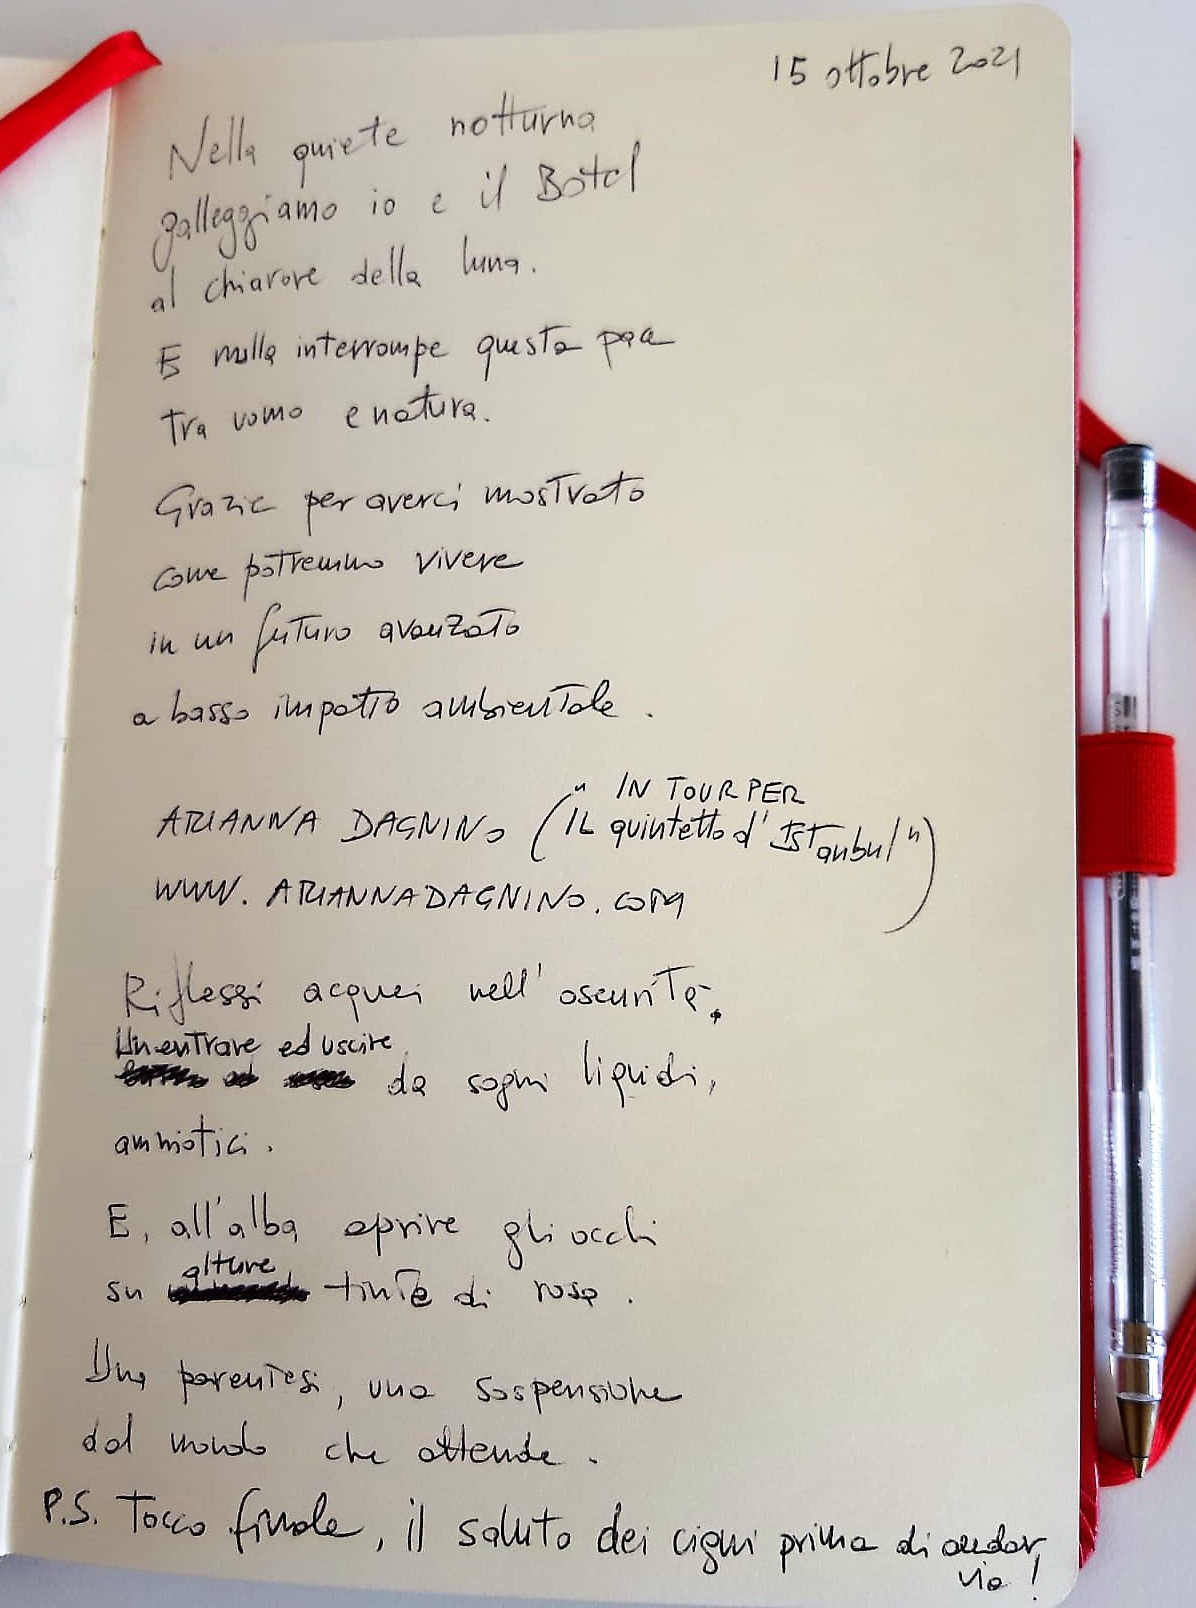 15 ottobre 2021
Nella quiete notturna
galleggiamo io e il Botel
al chiarore della luna.
E nulla interrompe questa pace
tra uomo e natura.
Grazie per averci mostrato
come potremmo vivere
in un futuro avanzato
a basso impatto ambientale.
ARIANNA DAGNINO ("IN TOUR PER
IL quintetto d'Istanbul")
WWW.ARIANNADAGNINO.COM
Riflessi acquei nell'oscurità.
Un entrare ed uscire
da sogni liquidi,
amniotici.
E, all'alba aprire gli occhi
su alture tinte di rosa.
Una parentesi, una sospensione
dal mondo che attende.
P.S. Tocco finale, il saluto dei cigni prima di andar
via!